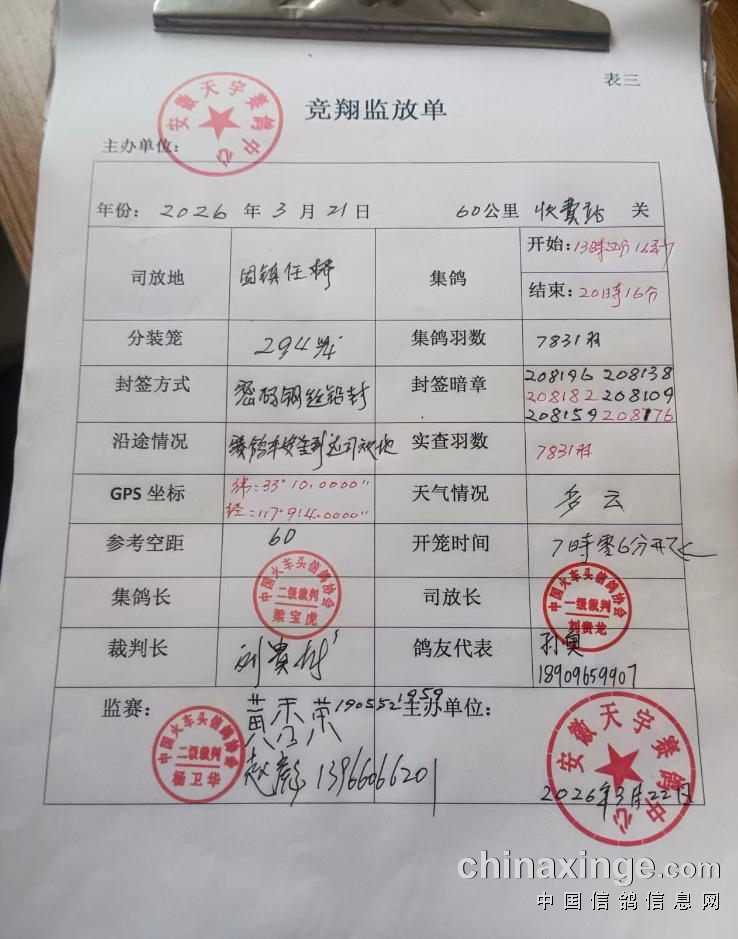 表三
竞翔监放单
安徽天宇赛鸽中心
主办单位:
年份: 2026 年 3 月 21 日 60公里 收费站 关
司放地 固镇任桥 集鸽 开始:13時 分16秒
结束:20時16分
分装笼 294 集鸽羽数 7831羽
封签方式 密码钢丝铅封 封签暗章 208196 208138
208182 208109
208159 208176
沿途情况 赛鸽车安全到达司放地 实查羽数 7831羽
GPS 坐标 纬:33°10.0000"
经:117°9.4.0000"
天气情况 多云
参考空距 60 开笼时间 7時零6分开
集鸽长 中国火车头信鸽协会 二级裁判 梁宝虎
司放长 中国火车头信鸽协会 一级裁判 刘贵龙
裁判长 刘貴材 鸽友代表 孙奥
18909659907
监赛: 黄 荣 1905521959 主办单位:
中国火车头信鸽协会 二级裁判 杨卫华
赵彪 13966066201
安徽天宇赛鸽中心
2026年3月22日
chinaxinge.com
中国信鸽信息网